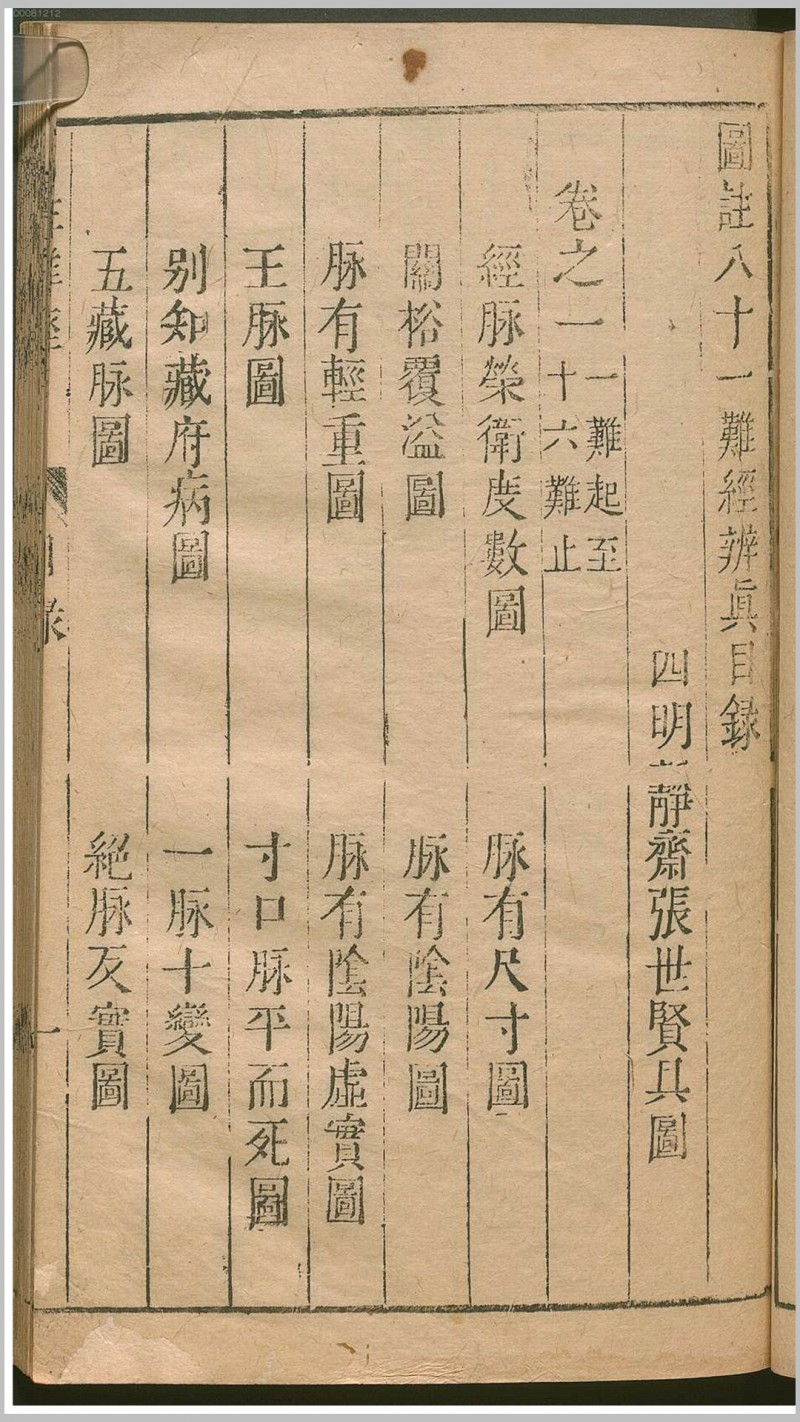 00081212
圖註八十一難經辨眞目録
四明靜齋張世賢具圖
卷之一 一難起至十六難止
經脉榮衛度數圖 脉有尺寸圖
關格覆溢圖 脉有陰陽圖
脉有輕重圖 脉有陰陽虛實圖
王脉圖 寸口脉平而死圖
别知藏府病圖 一脉十變圖
五藏脉圖 絕脉反實圖